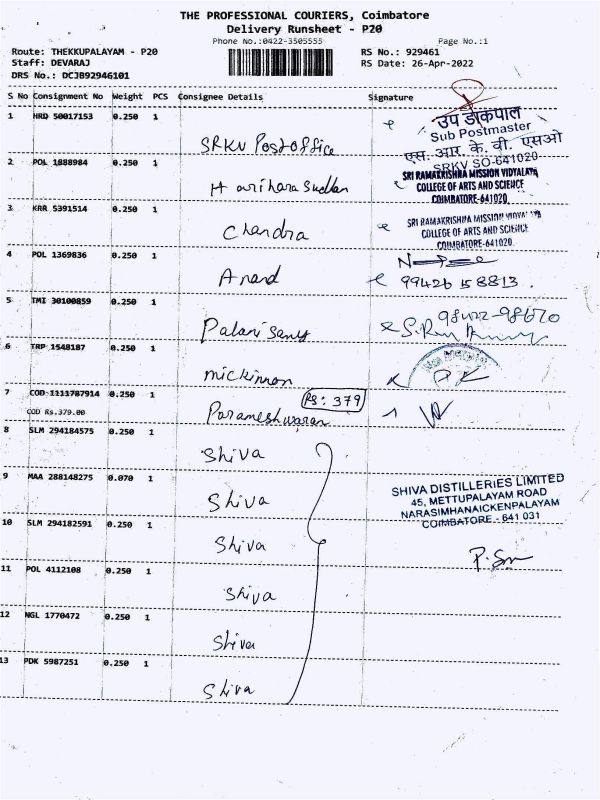 THE PROFESSIONAL COURIERS, Coimbatore
Delivery Runsheet - P20
Phone No.:0422-3505555
Page No.:1
Route: THEKKUPALAYAM - P20
RS No.: 929461
Staff: DEVARAJ
RS Date: 26-Apr-2022
DRS No.: DCJB92946101
S No Consignment No Weight PCS Consignee Details Signature
1 HRD 50017153 0.250 1
SRKV Postoffice
उप डाकपाल
Sub Postmaster
एस. आर. के. वी. एसओ
SRKV SO-641020
2 POL 1888984 0.250 1
Hariharasudhan
SRI RAMAKRISHNA MISSION VIDYALAYA
COLLEGE OF ARTS AND SCIENCE
COIMBATORE-641020
3 KRR 5391514 0.250 1
Chandra
SRI RAMAKRISHNA MISSION VIDYA
COLLEGE OF ARTS AND SCIENCE
COIMBATORE-641020
4 POL 1369836 0.250 1
Anand
99426 15 8813.
5 TMI 30100859 0.250 1
Palanisamy
6 TRP 1548187 0.250 1
mickinnon
7 COD 1111787914 0.250 1
COD Rs.379.00
Parameshwaran
RS: 379
8 SLM 294184575 0.250 1
Shiva
9 MAA 288148275 0.070 1
Shiva
SHIVA DISTILLERIES LIMITED
45, METTUPALAYAM ROAD
NARASIMHANAICKENPALAYAM
COIMBATORE - 641 031
10 SLM 294182591 0.250 1
Shiva
11 POL 4112108 0.250 1
Shiva
12 NGL 1770472 0.250 1
Shiva
13 PDK 5987251 0.250 1
Shiva